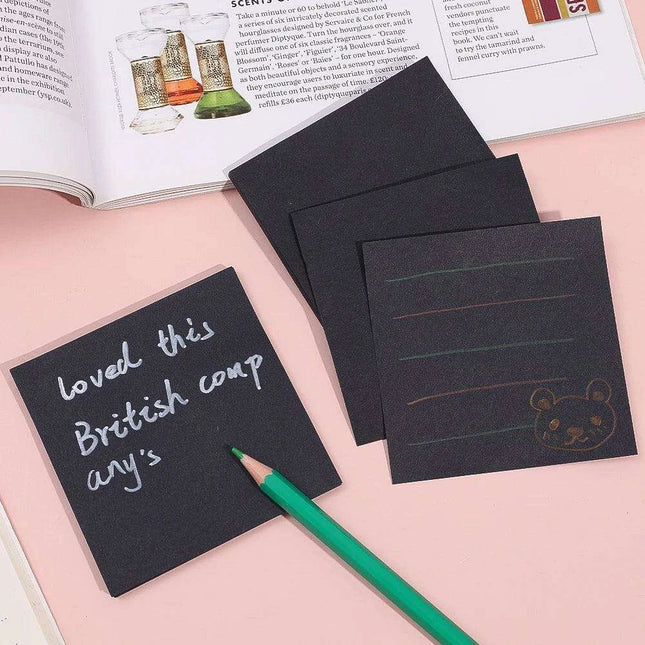 depictions of
dian cases (the
to the terrarium,
display are also
Pattullo has designed
and homeware range
e in the exhibition
eptember (ysp.co.uk).
SCENTS
Take a minute or 60 to behold 'Le Sablier'
a series of six intricately decorated
hourglasses designed by Servaire & Co for French
perfumer Diptyque. Turn the hourglass and one
will diffuse one of six classic fragrances – 'Orange
Blossom', 'Ginger', 'Figuier', '34 Boulevard Saint
Germain', 'Roses' or 'Baies' – for one hour. Designed
as both beautiful objects and a sensory experience,
they encourage users to luxuriate in scent and
meditate on the passage of time. £120
refills £36 each (diptyqueparis
fresh coconut
vendors punctuate
the tempting
recipes in this
book. We can't wait
to try the tamarind and
fennel curry with prawns.
loved this
British comp
any's